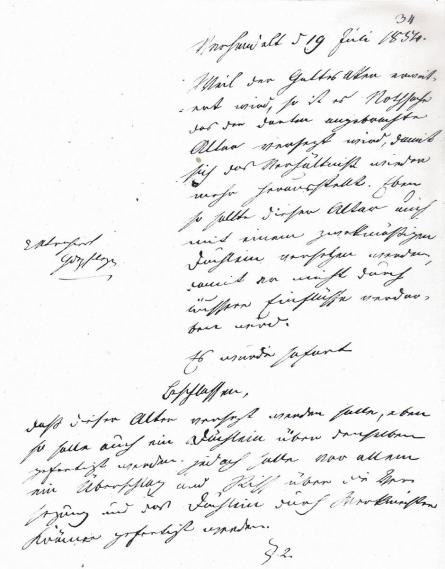 34
Verhandelt d 19 Juli 1834.
Weil der Gottes Aker erweit-
ert wird, so ist es Nothsache
das der darin angebrachte
Altar versezt wird, damit
sich das Verhältniß wieder
mehr herausstellt. Eben
so sollte dieser Altar auch
mit einem zwekmäßigen
Dächlein versehen werden,
damit er nicht durch
äussere Einflüsse verdor-
ben werd.
Es wurde sofort
Beschlossen,
daß dieser Altar versezt werden solle, eben
so solle auch ein Dächlein über denselben
gefertigt werden. jedoch solle vor allem
ein Überschlag und Riß über die Ver-
sezung und das Dächlein durch Werkmeister
gefertigt werden.
§ 2.